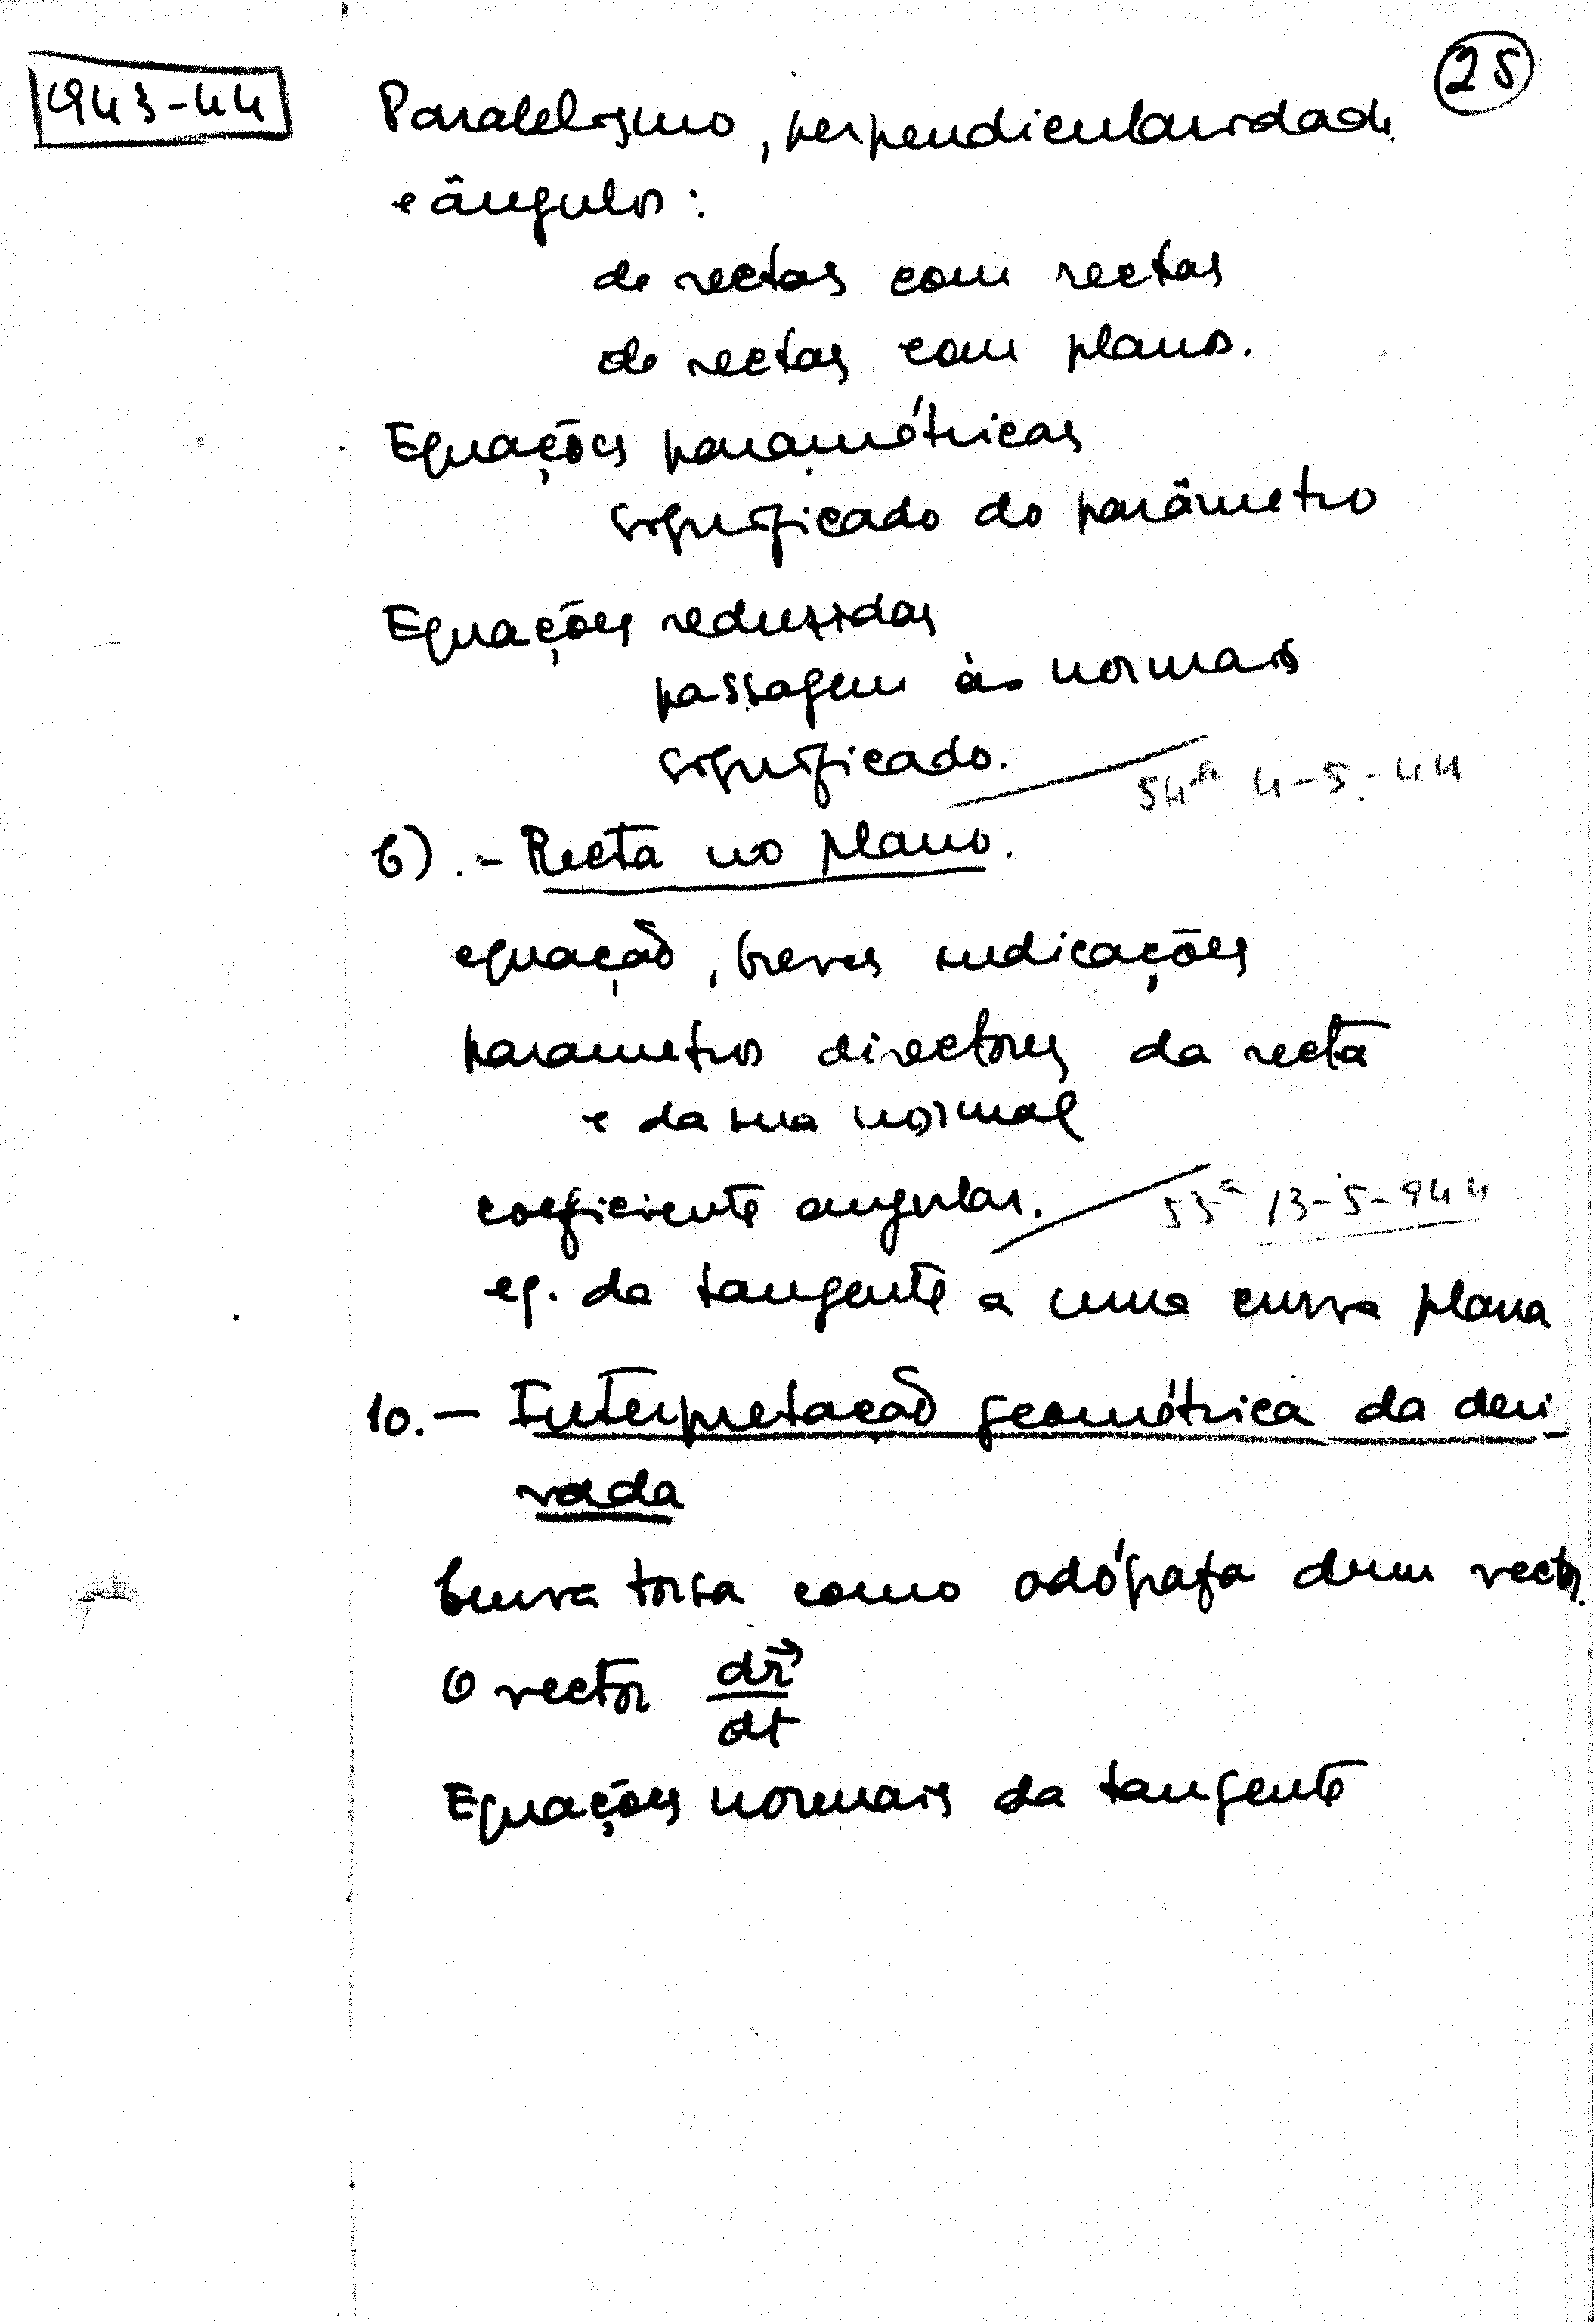 943-44
25
Paralelismo, perpendicularidade
e ângulos:
de rectas com rectas
de rectas com planos.
Equações paramétricas
significado do parâmetro
Equações reduzidas
passagem às normais
significado.
54ª 4-5-44
C) .- Recta no plano.
equação, breves indicações
parametros directores da recta
e da sua normal
coeficiente angular.
13-5-944
eq. da tangente a uma curva plana
10. - Interpretação geométrica da deri
vada
Curva torsa como odógrafa dum vector.
O vector d𝑟⃗/dt
Equações normais da tangente